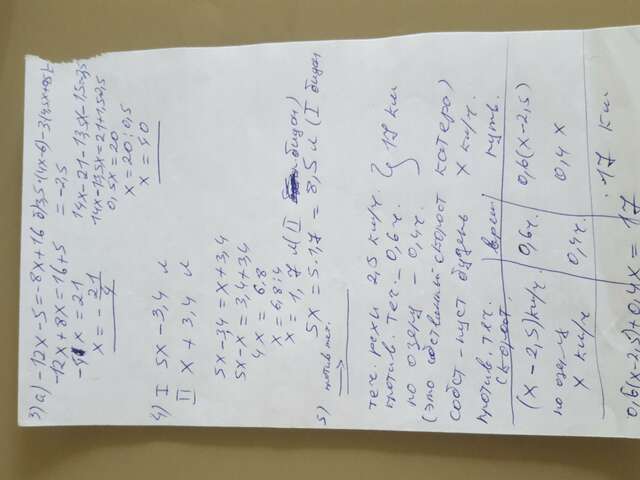 3) а) -12x-5=8x+16
-12x+8x=16+5
x=21
x=-21/4
=-2,5
14x-21-13,5x-1,5=-2,5
14x-13,5x=21+1,5-2,5
0,5x=20
x=20:0,5
x=40
4) I 5x-3,4 л
II x+3,4 л
5x-3,4=x+3,4
5x-x=3,4+3,4
4x=6,8
x=6,8:4
x=1,7 л (II бидон)
5x=5·1,7=8,5 л (I бидон)
5) против теч.
теч. реки 2,5 км/ч.
против. теч. - 0,6ч. } 17 км
по озеру - 0,4ч.
(это собственный скорост катера)
собст - пуст будень x км/ч.
против теч.
скорост. врем путь.
(x-2,5) км/ч. 0,6ч. 0,6(x-2,5)
по озеру
x км/ч 0,4ч. 0,4x
17 км
0,6(x-2,5)+0,4x=17